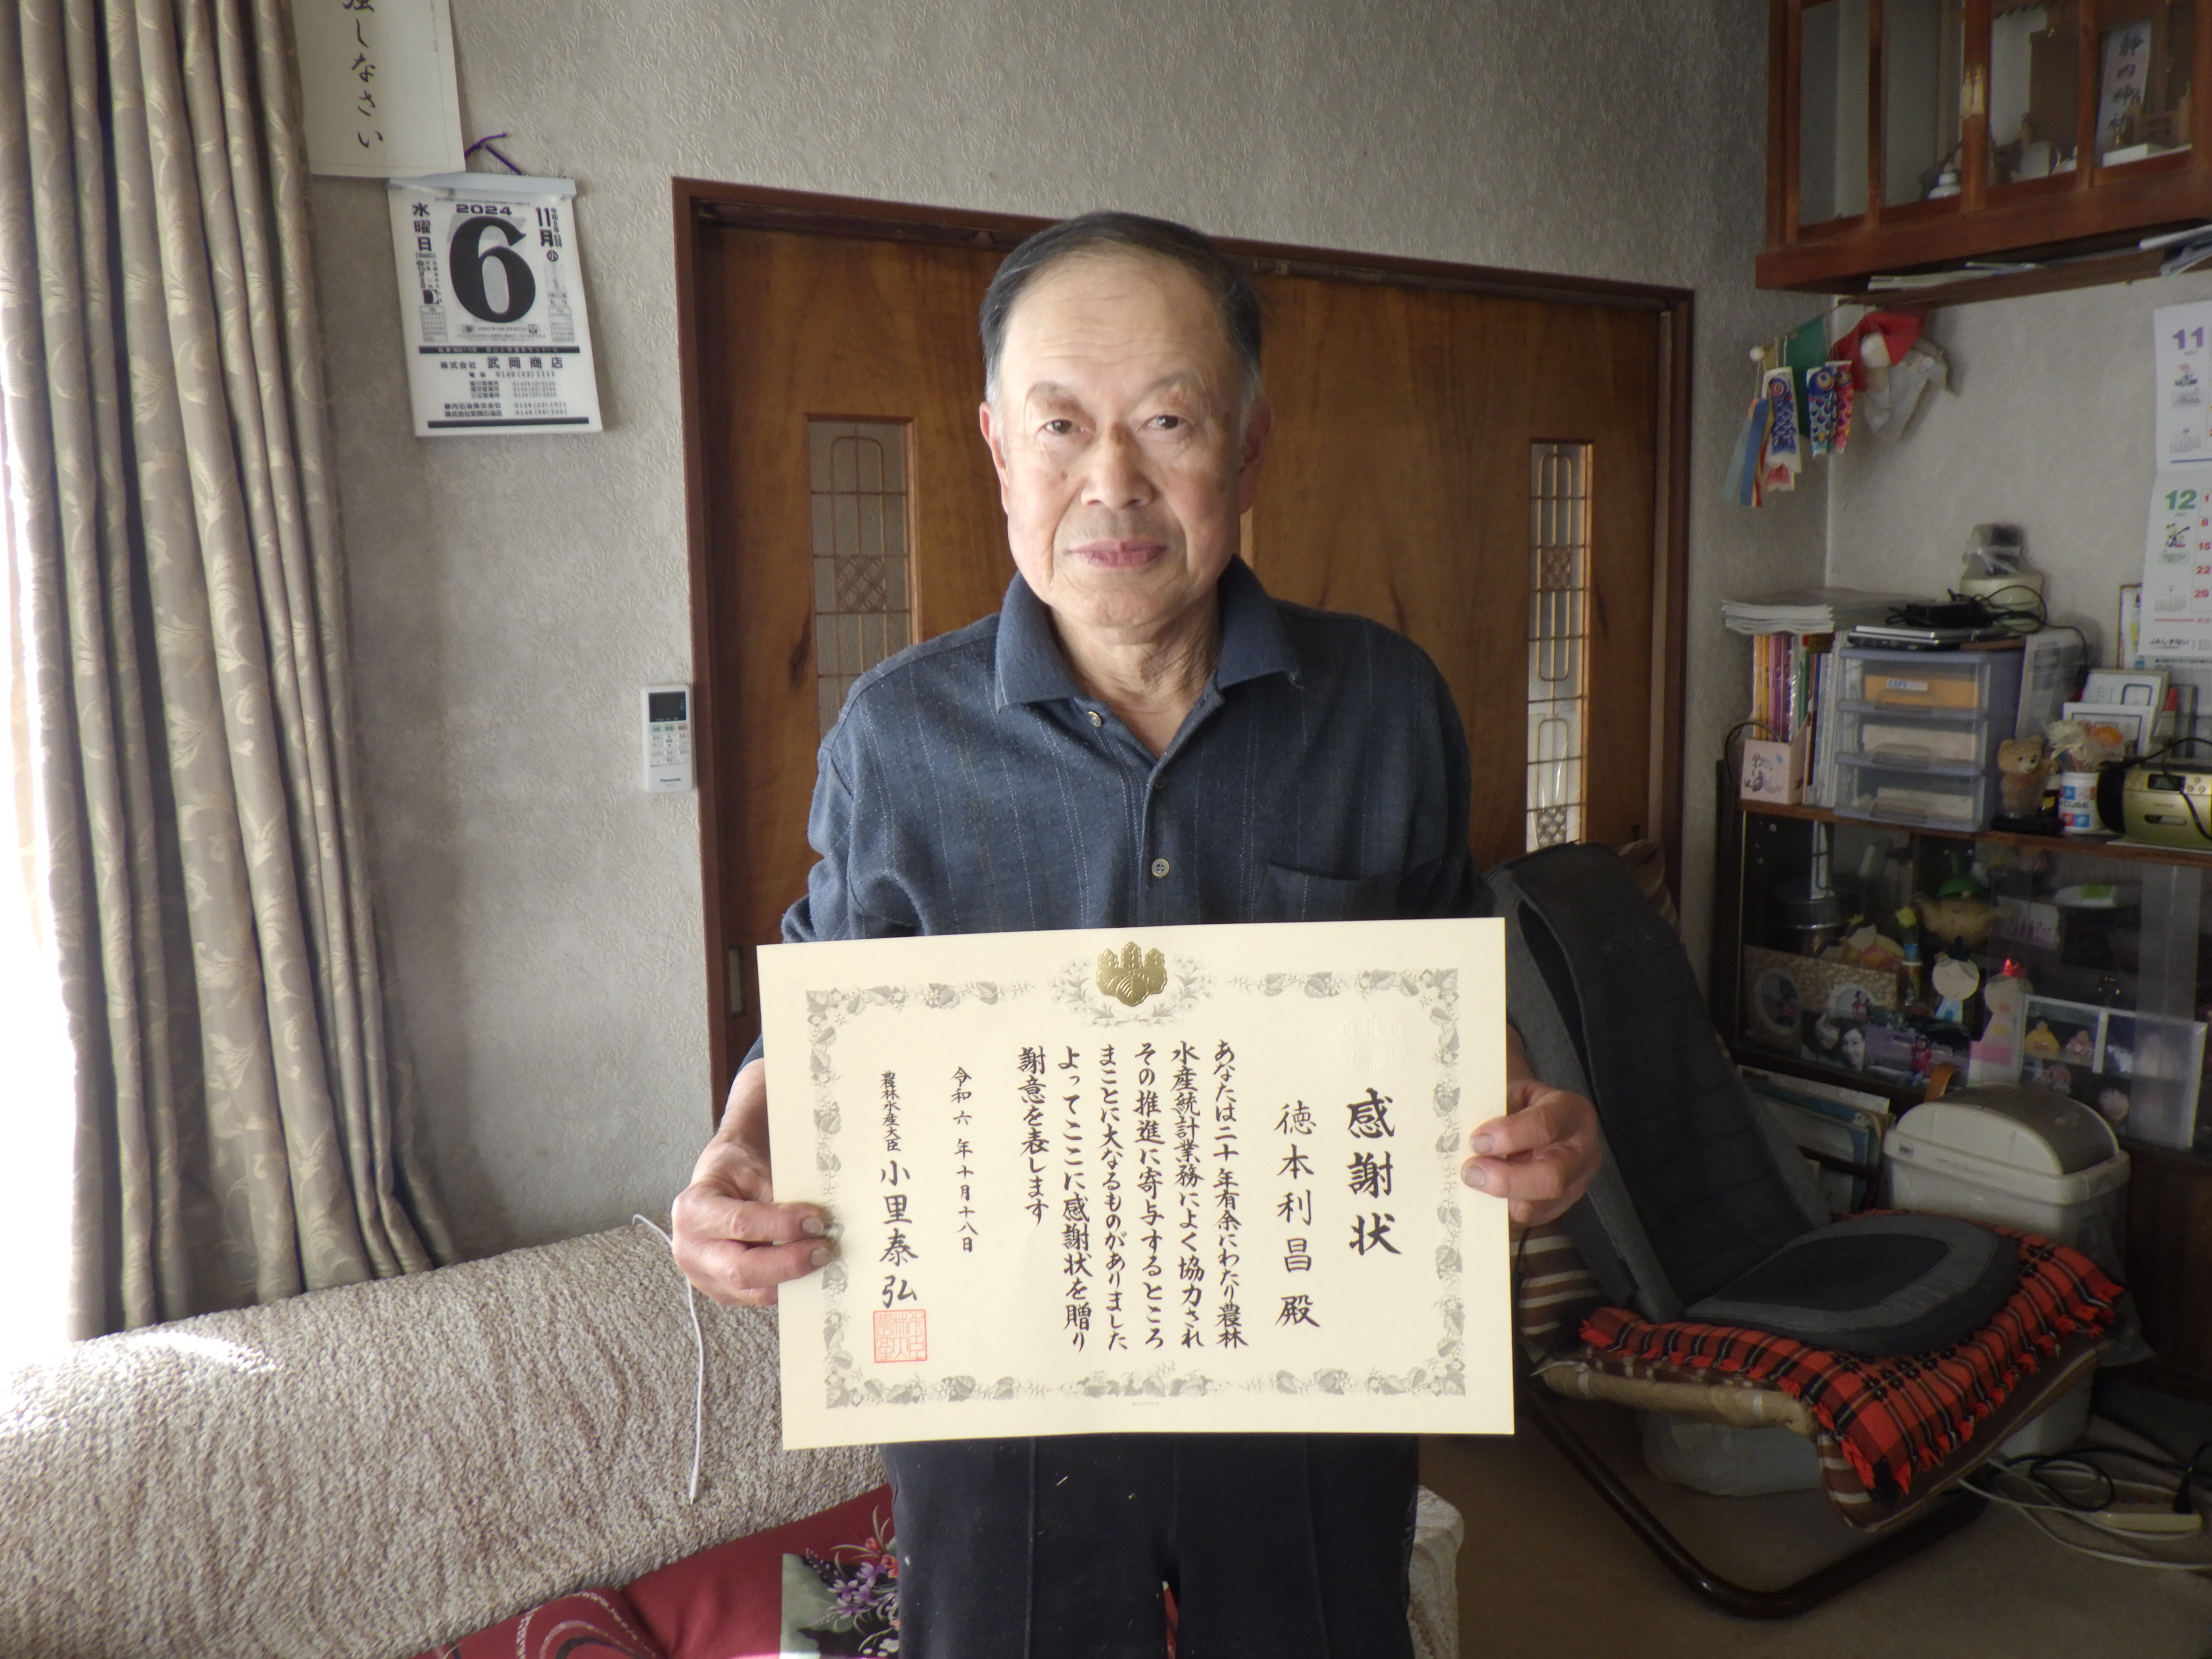 感謝状
徳本利昌殿
あなたは二十年有余にわたり農林
水産統計業務によく協力され
その推進に寄与するところ
まことに大なるものがありました
よってここに感謝状を贈り
謝意を表します
令和六年十月十八日
農林水産大臣 小里泰弘
しなさい
2024
11月
小
6
水曜日
株式会社 武岡商店
0146(42)1111
静内石油株式会社
Panasonic
11
12
1
8
15
22
29
JAしずない